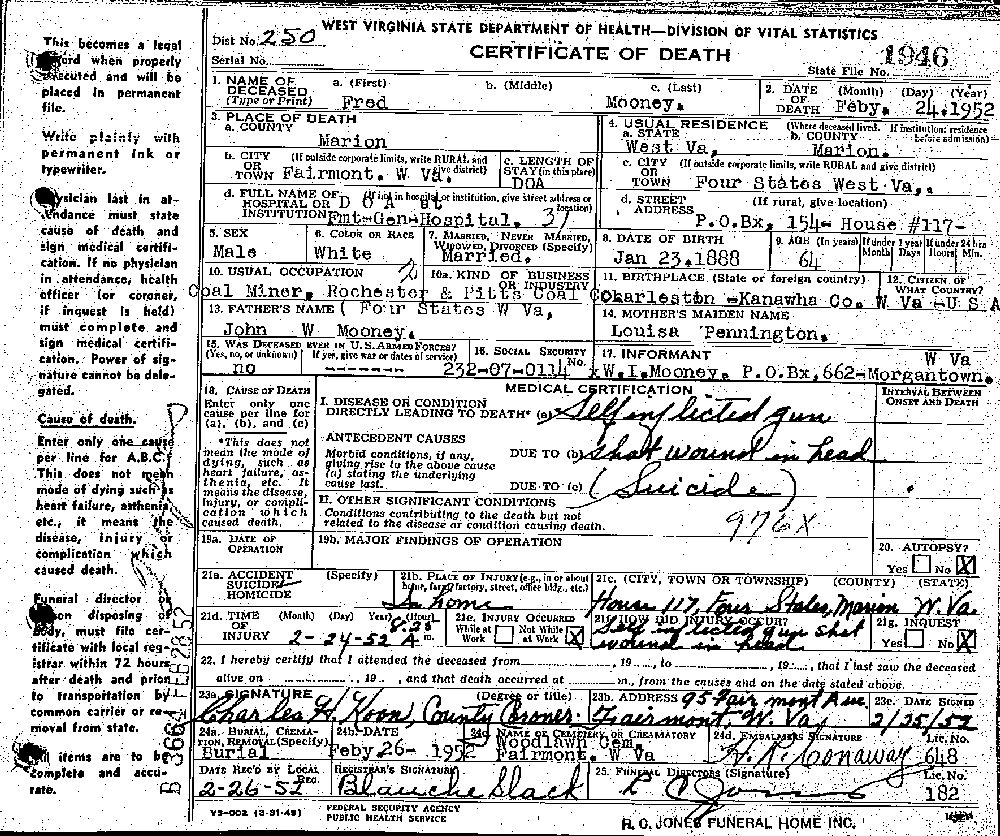 WEST VIRGINIA STATE DEPARTMENT OF HEALTH—DIVISION OF VITAL STATISTICS
Dist No. 250
CERTIFICATE OF DEATH
1946
Serial No.
State File No.
This becomes a legal
record when properly
executed and will be
placed in permanent
file.
Write plainly with
permanent ink or
typewriter.
Physician last in at-
tendance must state
cause of death and
sign medical certifi-
cation. If no physician
in attendance, health
officer (or coroner,
if inquest is held)
must complete and
sign medical certifi-
cation. Power of sig-
nature cannot be dele-
gated.
Cause of death.
Enter only one cause
per line for A.B.C.
This does not mean
mode of dying such as
heart failure, asthenia,
etc., it means the
disease, injury or
complication which
caused death.
Funeral director or
person disposing of
body, must file cer-
tificate with local reg-
istrar within 72 hours
after death and prior
to transportation by
common carrier or re-
moval from state.
All items are to be
complete and accu-
rate.
1. NAME OF DECEASED (Type or Print) a. (First) b. (Middle) c. (Last)
Fred Mooney.
2. DATE OF DEATH (Month) (Day) (Year)
Feby. 24.1952
3. PLACE OF DEATH
a. COUNTY
Marion
4. USUAL RESIDENCE (Where deceased lived. If institution: residence before admission)
a. STATE b. COUNTY
West Va, Marion.
b. CITY OR TOWN (If outside corporate limits, write RURAL and give district)
Fairmont. W Va.
c. LENGTH OF STAY (in this place)
DOA
c. CITY OR TOWN (If outside corporate limits, write RURAL and give district)
Four States West Va,.
d. FULL NAME OF HOSPITAL OR INSTITUTION (If not in hospital or institution, give street address or location)
D O A at
Fmt-Gen-Hospital. 37
d. STREET ADDRESS (If rural, give location)
P.O.Bx, 154- House #117-
5. SEX
Male
6. COLOR OR RACE
White
7. MARRIED, NEVER MARRIED, WIDOWED, DIVORCED (Specify)
Married.
8. DATE OF BIRTH
Jan 23.1888
9. AGE (In years) If under 1 year Months Days If under 24 hrs Hours Min.
64
10. USUAL OCCUPATION 10a. KIND OF BUSINESS OR INDUSTRY
Coal Miner. Rochester & Pitts Coal C
( Four States W Va,
11. BIRTHPLACE (State or foreign country)
Charleston -Kanawha Co. W Va
12. CITIZEN OF WHAT COUNTRY?
-U S A
13. FATHER'S NAME
John W Mooney.
14. MOTHER'S MAIDEN NAME
Louisa Pennington.
15. WAS DECEASED EVER IN U.S. ARMED FORCES?
(Yes, no, or unknown) (If yes, give war or dates of service)
no -------
16. SOCIAL SECURITY No.
232-07-0114
17. INFORMANT
W Va
xW.I.Mooney. P.O.Bx,662-Morgantown.
18. CAUSE OF DEATH
Enter only one
cause per line for
(a), (b), and (c)
*This does not
mean the mode of
dying, such as
heart failure, as-
thenia, etc. It
means the disease,
injury, or compli-
cation which
caused death.
MEDICAL CERTIFICATION
INTERVAL BETWEEN ONSET AND DEATH
I. DISEASE OR CONDITION
DIRECTLY LEADING TO DEATH* (a) Self inflicted gun
ANTECEDENT CAUSES
Morbid conditions, if any,
giving rise to the above cause
(a) stating the underlying
cause last.
DUE TO (b) shot wound in head
DUE TO (c) (Suicide)
II. OTHER SIGNIFICANT CONDITIONS
Conditions contributing to the death but not
related to the disease or condition causing death.
976X
19a. DATE OF OPERATION
19b. MAJOR FINDINGS OF OPERATION
20. AUTOPSY?
Yes No X
21a. ACCIDENT SUICIDE HOMICIDE (Specify)
21b. PLACE OF INJURY (e.g., in or about home, farm, factory, street, office bldg., etc.)
In home
21c. (CITY, TOWN OR TOWNSHIP) (COUNTY) (STATE)
House 117, Four States, Marion W. Va.
21d. TIME OF INJURY (Month) (Day) (Year) (Hour)
2-24-52 A m.
21e. INJURY OCCURRED
While at Work Not While at Work X
21f. HOW DID INJURY OCCUR?
Self inflicted gun shot
wound in head
21g. INQUEST
Yes No X
22. I hereby certify that I attended the deceased from , 19 , to , 19 , that I last saw the deceased
alive on , 19 , and that death occurred at m., from the causes and on the date stated above.
23a. SIGNATURE (Degree or title)
Charles H. Koon, County Coroner.
23b. ADDRESS 95 Fairmont Ave
Fairmont, W. Va,
23c. DATE SIGNED
2/25/52
24a. BURIAL, CREMATION, REMOVAL (Specify)
Burial
24b. DATE
Feby 26- 1952
24c. NAME OF CEMETERY OR CREMATORY
Woodlawn Cem.
Fairmont. W Va
24d. EMBALMERS SIGNATURE Lic. No.
H. R. Conaway 648
DATE REC'D BY LOCAL REG.
2-26-52
REGISTRAR'S SIGNATURE
Blanche Slack
25. FUNERAL DIRECTORS (Signature) Lic. No.
182
VS-002 (3-31-49)
FEDERAL SECURITY AGENCY
PUBLIC HEALTH SERVICE
R. C. JONES FUNERAL HOME INC.